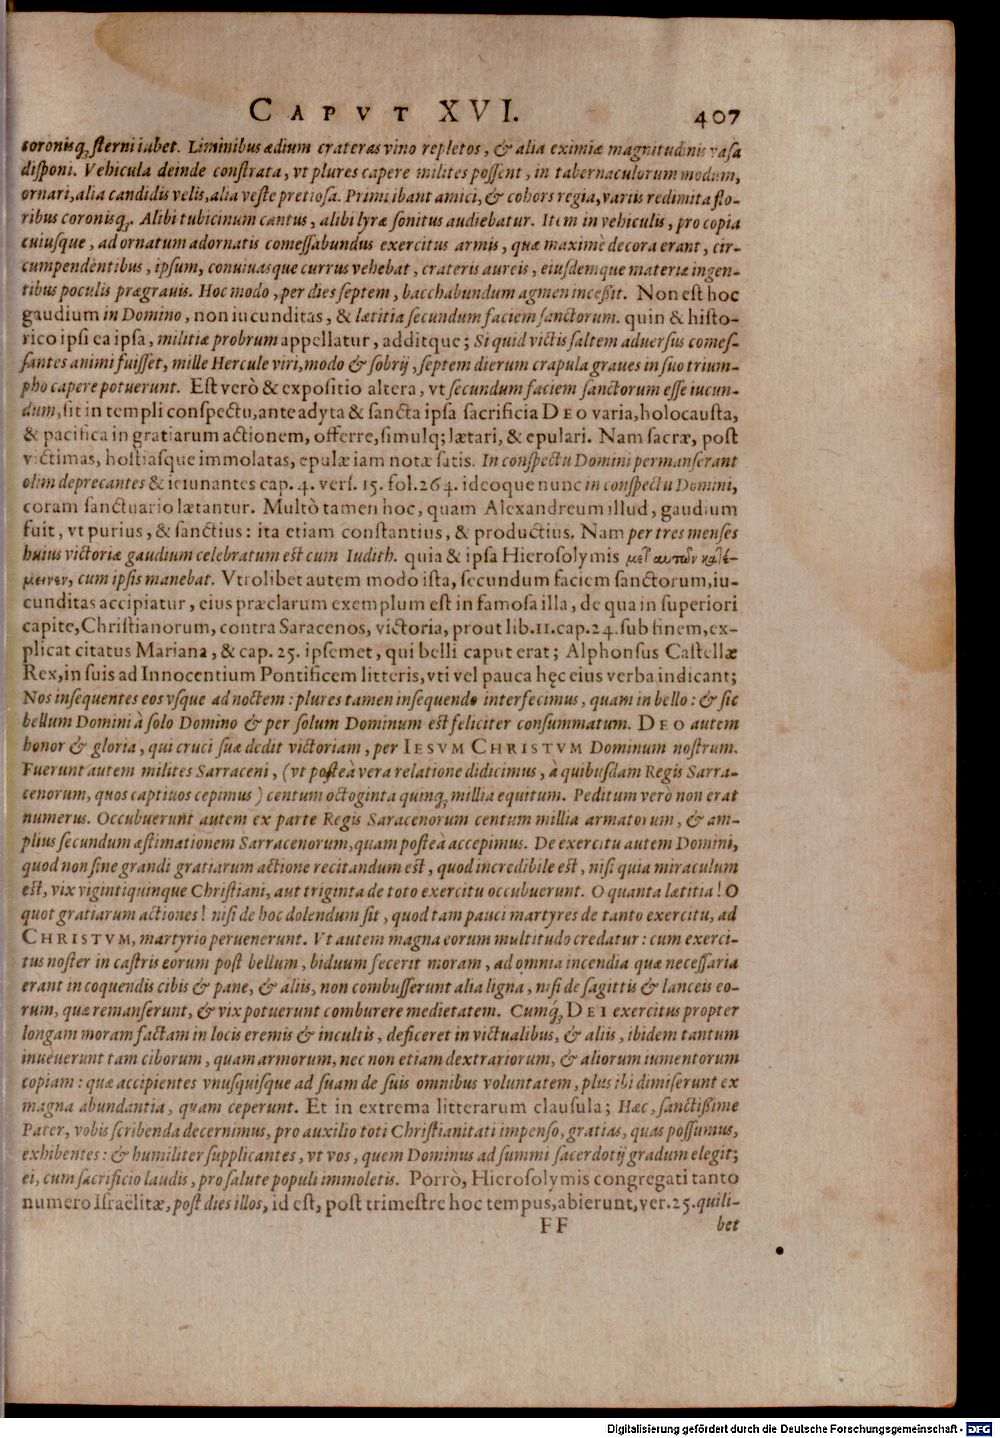 CAPVT XVI. 407
coronisq; sterni iubet. Liminibus ædium crateras vino repletos, & alia eximiæ magnitudinis vasa
disponi. Vehicula deinde constrata, vt plures capere milites possent, in tabernaculorum modum,
ornari, alia candidis velis, alia veste pretiosa. Primi ibant amici, & cohors regia, variis redimita flo-
ribus coronisq;. Alibi tubicinum cantus, alibi lyræ sonitus audiebatur. Item in vehiculis, pro copia
cuiusque, ad ornatum adornatis comessabundus exercitus armis, quæ maximè decora erant, cir-
cumpendentibus, ipsum, conuiuasque currus vehebat, crateris aureis, eiusdemque materiæ ingen-
tibus poculis prægrauis. Hoc modo, per dies septem, bacchabundum agmen incessit. Non est hoc
gaudium in Domino, non iucunditas, & lætitia secundum faciem sanctorum. quin & histo-
rico ipsi ea ipsa, militiæ probrum appellatur, additque; Si quid victis saltem aduersus comes-
santes animi fuisset, mille Hercule viri, modo & sobrij, septem dierum crapula graues in suo trium-
pho capere potuerunt. Est verò & expositio altera, vt secundum faciem sanctorum esse iucun-
dum, sit in templi conspectu, ante adyta & sancta ipsa sacrificia DEO varia, holocausta,
& pacifica in gratiarum actionem, offerre, simulq; lætari, & epulari. Nam sacræ, post
victimas, hostiasque immolatas, epulæ iam notæ satis. In conspectu Domini permanserant
olim deprecantes & ieiunantes cap. 4. vers. 15. fol. 264. ideoque nunc in conspectu Domini,
coram sanctuario lætantur. Multò tamen hoc, quam Alexandreum illud, gaudium
fuit, vt purius, & sanctius: ita etiam constantius, & productius. Nam per tres menses
huius victoriæ gaudium celebratum est cum Iudith. quia & ipsa Hierosolymis μετ' αυτῶν κατέ-
μεινεν, cum ipsis manebat. Vtrolibet autem modo ista, secundum faciem sanctorum, iu-
cunditas accipiatur, eius præclarum exemplum est in famosa illa, de qua in superiori
capite, Christianorum, contra Saracenos, victoria, prout lib. 11. cap. 24. sub finem, ex-
plicat citatus Mariana, & cap. 25. ipsemet, qui belli caput erat; Alphonsus Castellæ
Rex, in suis ad Innocentium Pontificem litteris, vti vel pauca hęc eius verba indicant;
Nos insequentes eos vsque ad noctem: plures tamen insequendo interfecimus, quam in bello: & sic
bellum Domini à solo Domino & per solum Dominum est feliciter consummatum. DEO autem
honor & gloria, qui cruci suæ dedit victoriam, per IESVM CHRISTVM Dominum nostrum.
Fuerunt autem milites Sarraceni, (vt posteà vera relatione didicimus, à quibusdam Regis Sarra-
cenorum, quos captiuos cepimus) centum octoginta quinq; millia equitum. Peditum verò non erat
numerus. Occubuerunt autem ex parte Regis Saracenorum centum millia armatorum, & am-
plius secundum æstimationem Sarracenorum, quam posteà accepimus. De exercitu autem Domini,
quod non sine grandi gratiarum actione recitandum est, quod incredibile est, nisi quia miraculum
est, vix vigintiquinque Christiani, aut triginta de toto exercitu occubuerunt. O quanta lætitia! O
quot gratiarum actiones! nisi de hoc dolendum sit, quod tam pauci martyres de tanto exercitu, ad
CHRISTVM, martyrio peruenerunt. Vt autem magna eorum multitudo credatur: cum exerci-
tus noster in castris eorum post bellum, biduum fecerit moram, ad omnia incendia quæ necessaria
erant in coquendis cibis & pane, & aliis, non combusserunt alia ligna, nisi de sagittis & lanceis eo-
rum, quæ remanserunt, & vix potuerunt comburere medietatem. Cumq; DEI exercitus propter
longam moram factam in locis eremis & incultis, deficeret in victualibus, & aliis, ibidem tantum
inueuerunt tam ciborum, quam armorum, nec non etiam dextrariorum, & aliorum iumentorum
copiam: quæ accipientes vnusquisque ad suam de suis omnibus voluntatem, plus ibi dimiserunt ex
magna abundantia, quam ceperunt. Et in extrema litterarum clausula; Hæc, sanctissime
Pater, vobis scribenda decernimus, pro auxilio toti Christianitati impenso, gratias, quas possumus,
exhibentes: & humiliter supplicantes, vt vos, quem Dominus ad summi sacerdotij gradum elegit;
ei, cum sacrificio laudis, pro salute populi immoletis. Porrò, Hierosolymis congregati tanto
numero Israëlitæ, post dies illos, id est, post trimestre hoc tempus, abierunt, ver. 25. quili-
FF bet
Digitalisierung gefördert durch die Deutsche Forschungsgemeinschaft - DFG